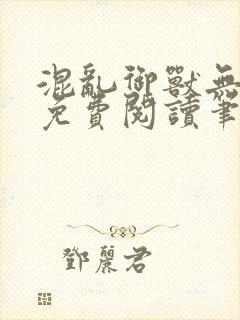 混亂御獸無
免費閱讀筆
鄧麗君